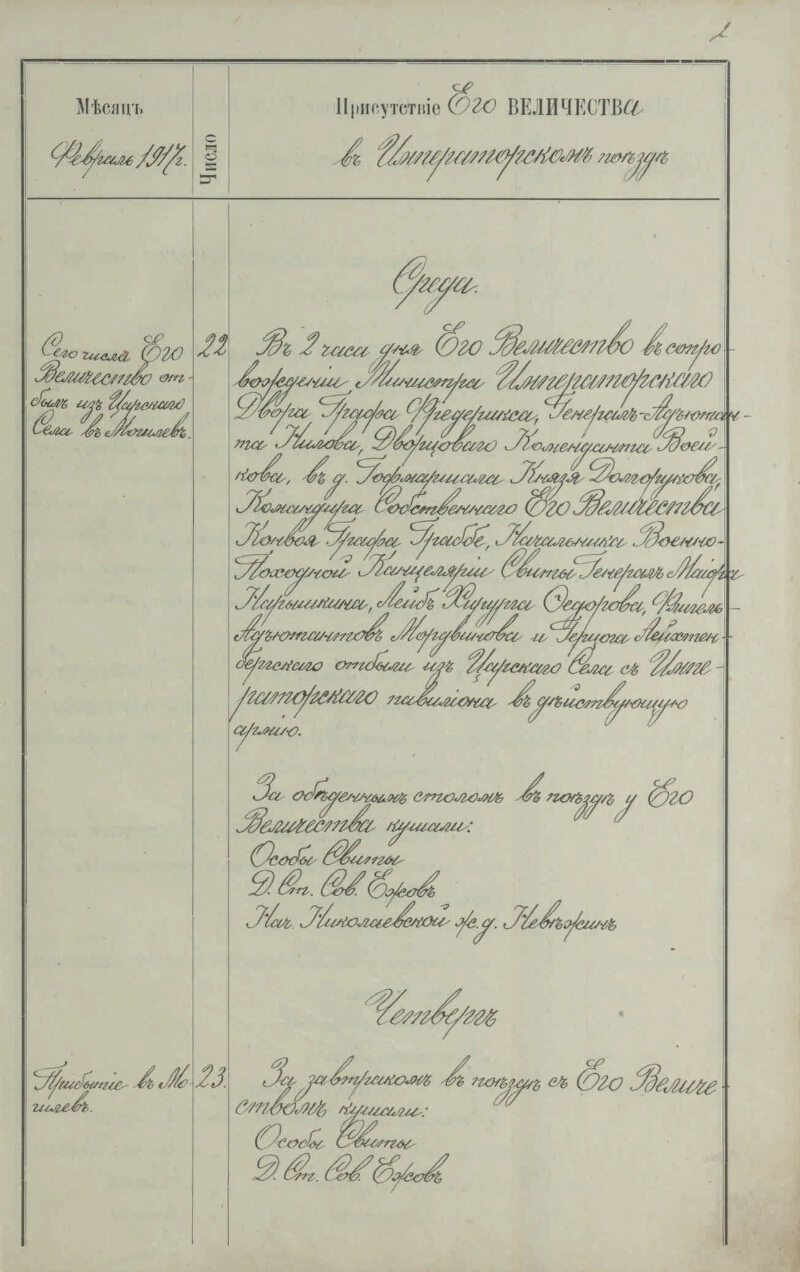 1
Мѣсяцъ
Февраль 1917г.
Число
Присутствіе Его ВЕЛИЧЕСТВа
въ Императорскомъ поѣздѣ
Среда.
Сего числа Его
Величество от-
былъ изъ Царскаго
Села въ Могилевъ.
22
Въ 2 часа дня Его Величество въ сопро-
вожденіи Министра Императорскаго
Двора Графа Фредерикса, Генералъ-Адъютан-
та Нилова, Дворцоваго Коменданта Воей-
кова, въ д. Гофмаршала Князя Долгорукова,
Командира Собственнаго Его Величества
Конвоя Графа Граббе, Начальника Военно-
Походной Канцеляріи Свиты Генералъ Маіора
Нарышкина, Лейбъ Хирурга Федорова, Флигель-
Адъютантовъ Мордвинова и Герцога Лейхтен-
бергскаго отбыли изъ Царскаго Села съ Импе-
раторскаго павиліона въ дѣйствующую
армію.
За обѣденнымъ столомъ въ поѣздѣ у Его
Величества кушали:
Особы Свиты
Д. Ст. Сов. Ежовъ
Нач. Николаевской ж. д. Невѣжинъ
Четвергъ
Прибытіе въ Мо-
гилевъ.
23.
За завтракомъ въ поѣздѣ съ Его Величе-
ствомъ кушали:
Особы Свиты
Д. Ст. Сов. Ежовъ